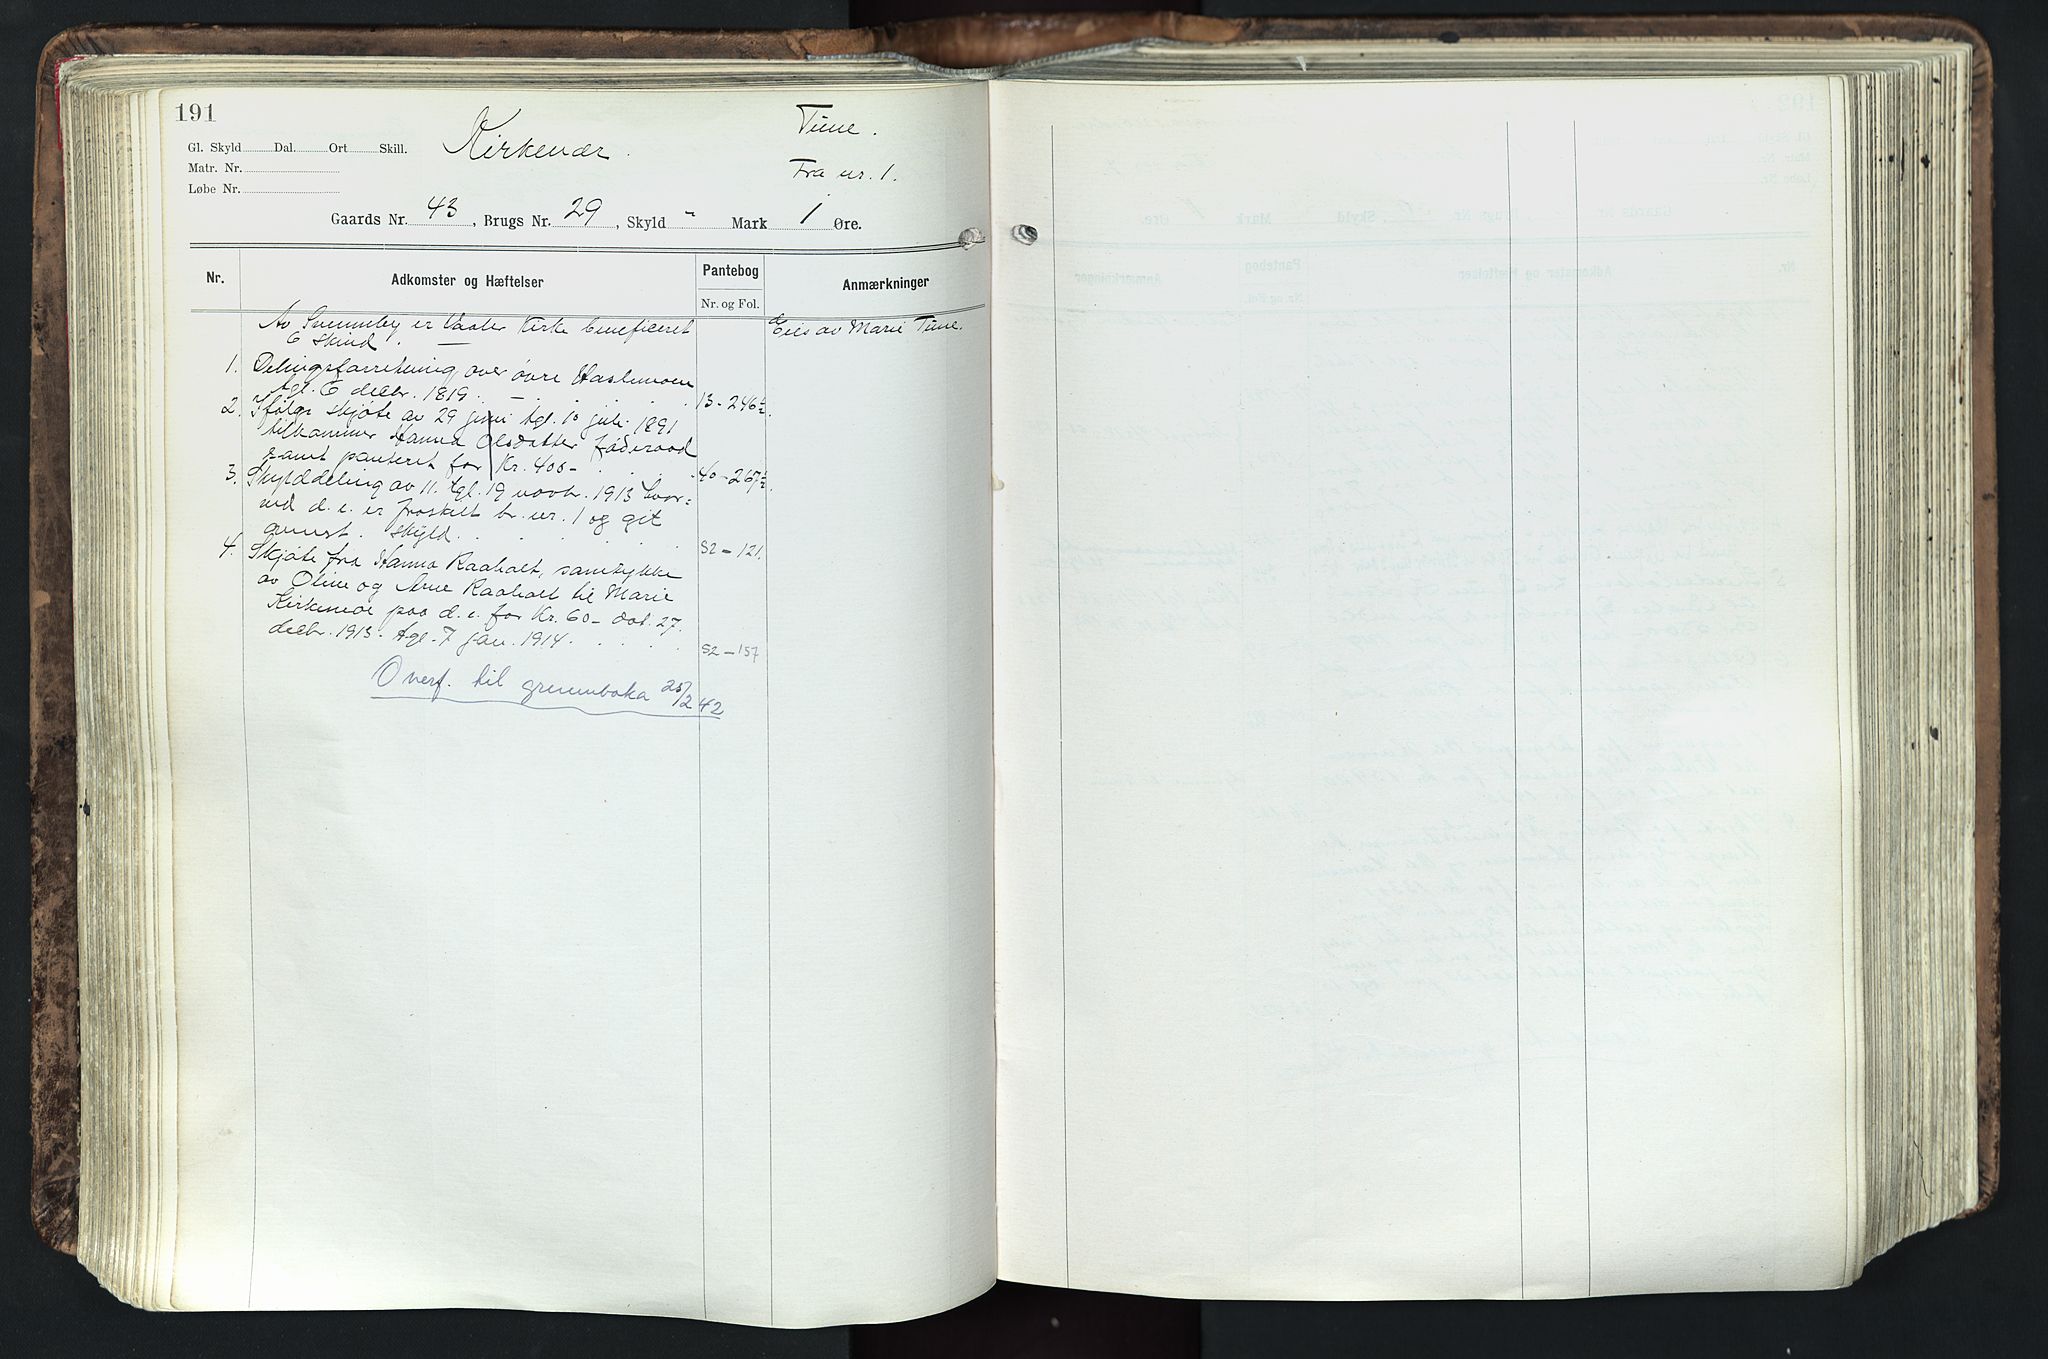 191
Kirkenær.
Tune.
Gl. Skyld Dal. Ort Skill.
Matr. Nr.
Fra nr. 1.
Løbe Nr.
Gaards Nr. 43, Brugs Nr. 29, Skyld " Mark 1 Øre.
Nr. Adkomster og Hæftelser Pantebog Anmærkninger
Nr. og Fol.
Av Svenneby er Vaaler Kirke beneficeret Eies av Marie Tune.
6 Skind.
1. Delingsforretning over øvre Haslemoen
tgl. 6 decbr. 1819. 13-246½.
2. Ifølge skjøte av 29 juni tgl. 10 juli 1891
tilkommer Hanna Olsdatter føderaad
samt panteret for Kr. 400- 40-267½.
3. Skylddeling av 11. tgl. 19 novbr. 1913 hvor-
ved d. e. er fraskilt br. nr. 1 og git
anmt. skyld. 52-121.
4. Skjøte fra Hanna Raaholt, samtykke
av Oline og Arne Raaholt til Marie
Kirkemoe paa d. e. for Kr. 60- dat. 27.
decbr. 1913. tgl. 7 jan. 1914. 52-157
Overf. til grunnboka 25/2 42